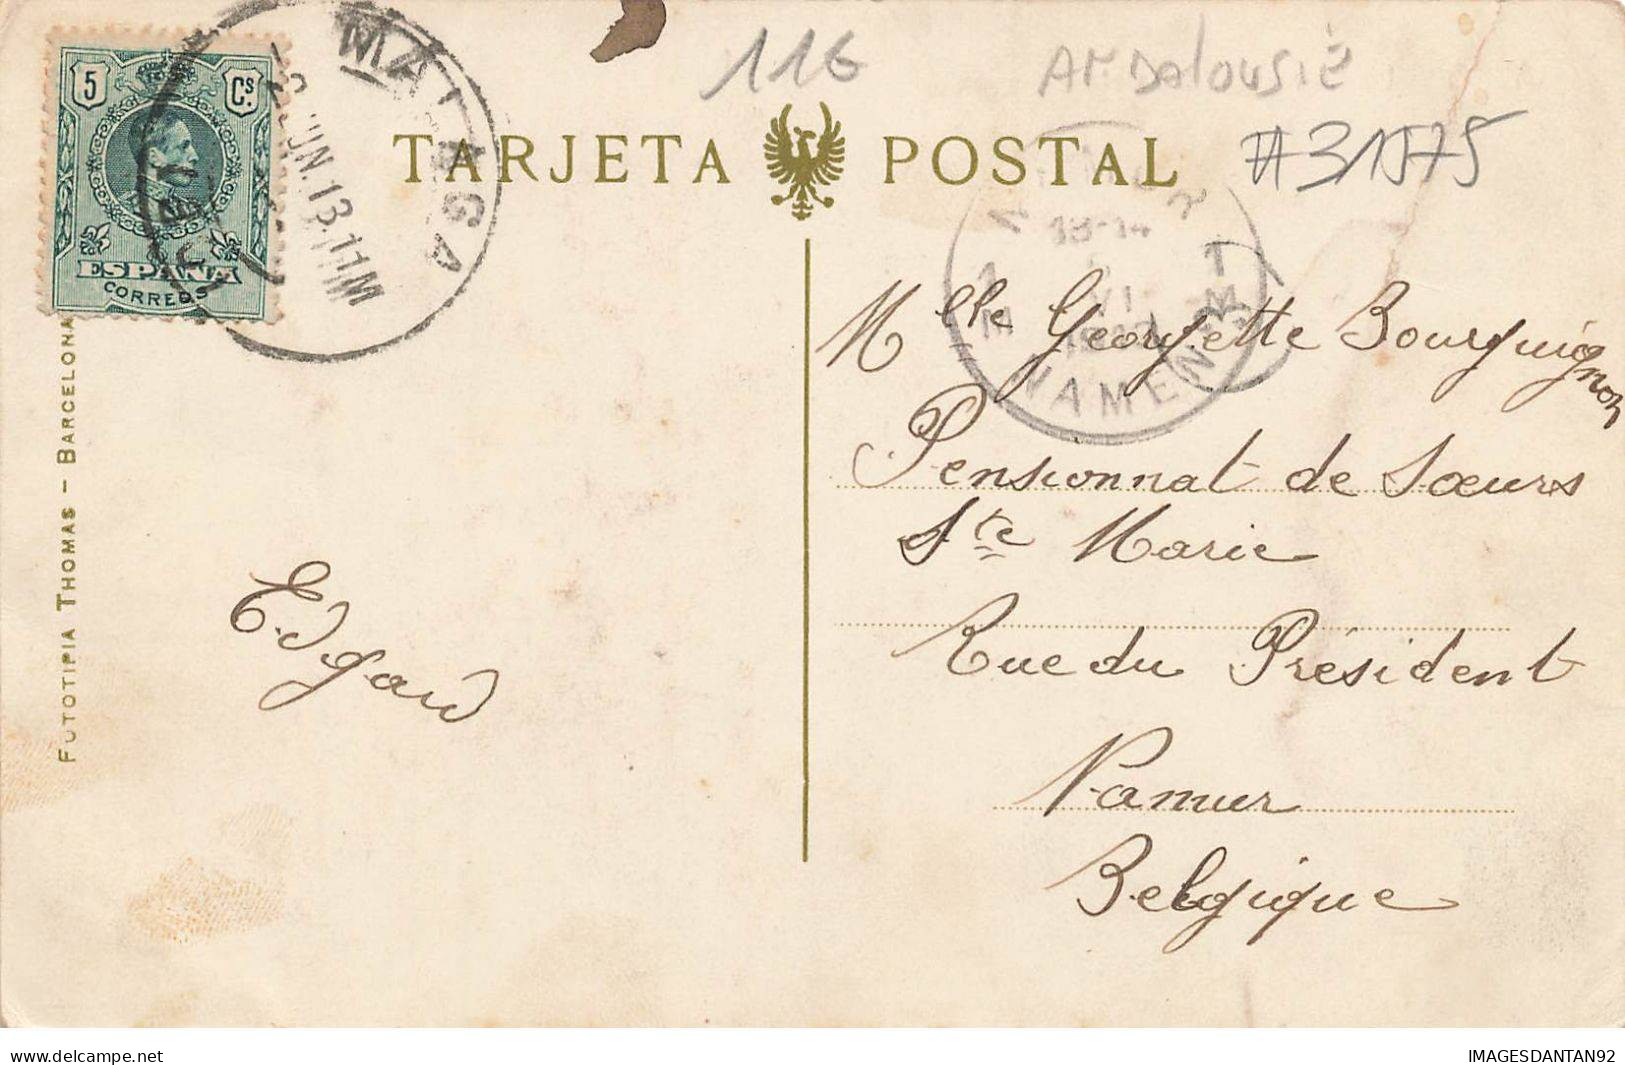 116
Andalousie
TARJETA POSTAL
#31575
5 Cs.
ESPAÑA
CORREOS
MALAGA
JUN.13.11M
13-14
VI
NAMEN
FOTOTIPIA THOMAS - BARCELONA
Mlle Georgette Bourguignon
Pensionnat de Sœurs
Ste Marie
Rue du Président
Namur
Belgique
Edgard
delcampe.net
IMAGESDANTAN92